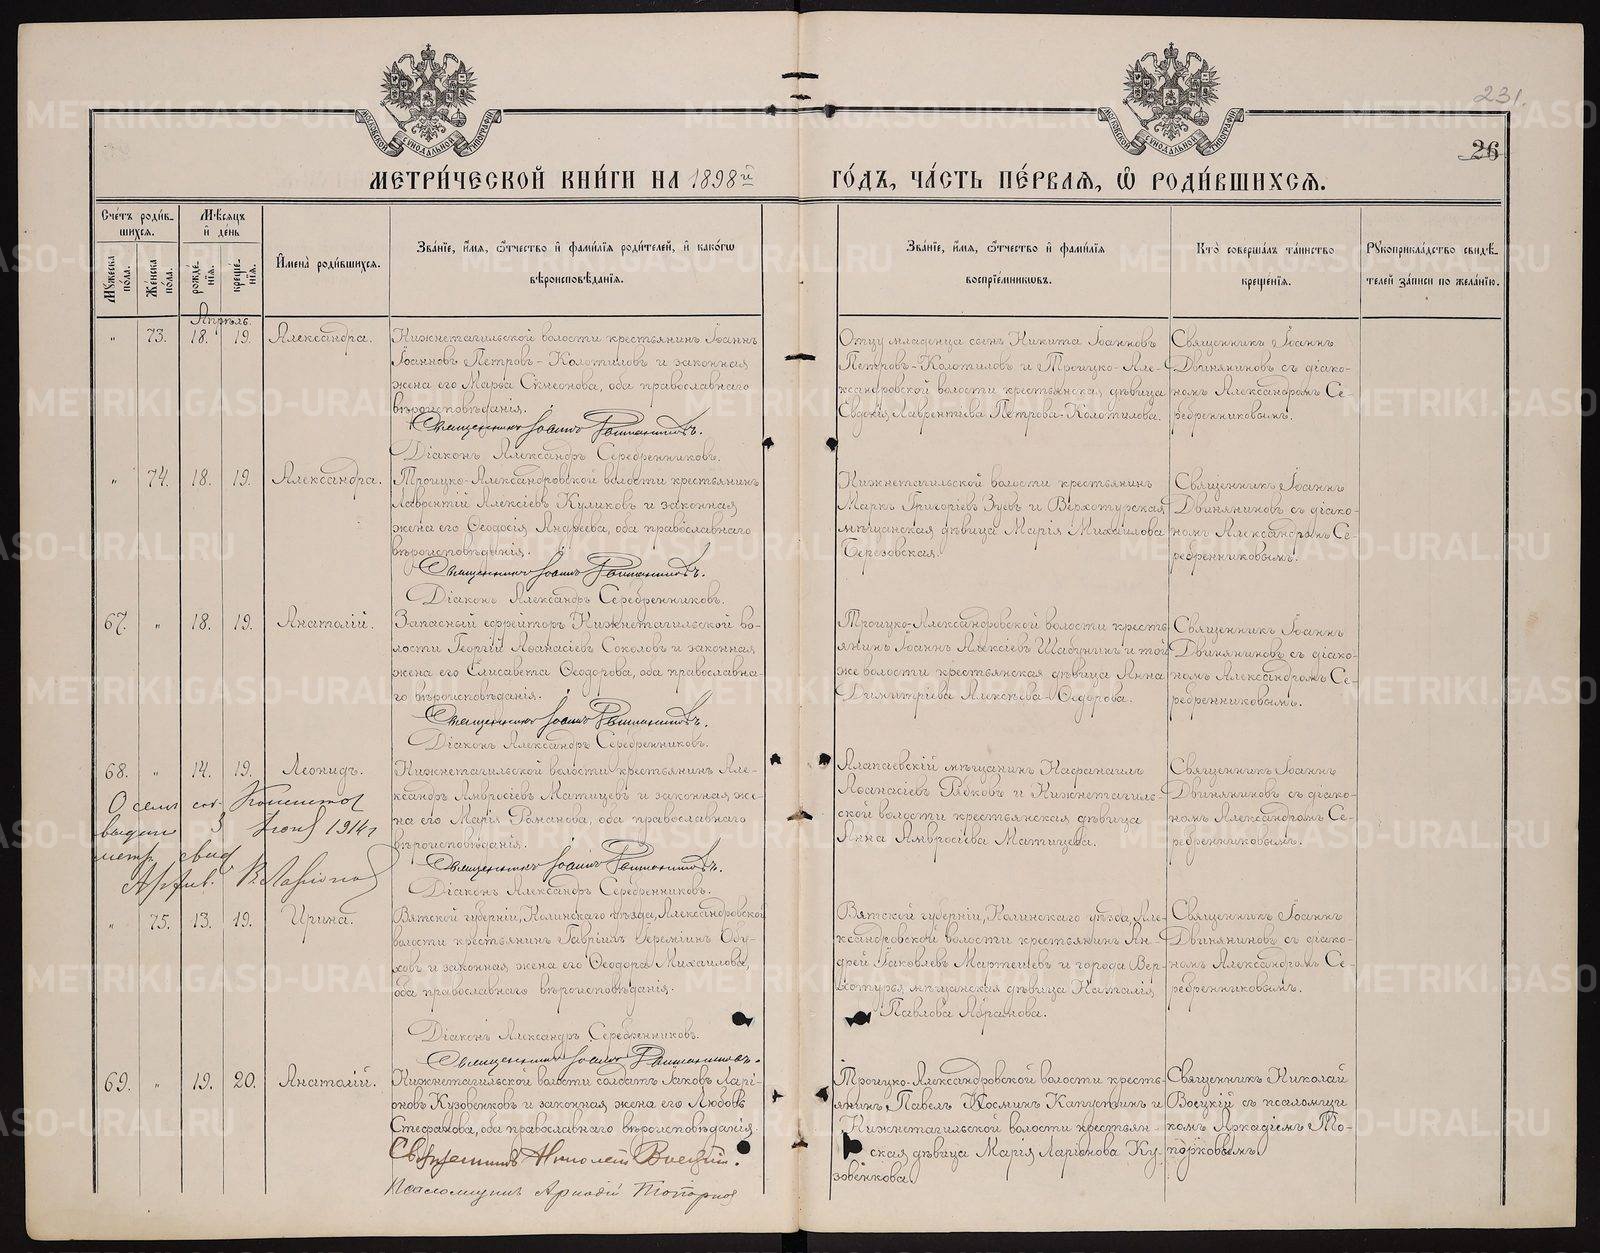 231.
26
МЕТРИ́ЧЕСКОЙ КНИ́ГИ НА 1898й
ГО́ДЪ, ЧА́СТЬ ПЕ́РВАЯ, Ѽ РОДИ́ВШИХСЯ.
МОСКОВСКОЙ СѴНОДАЛЬНОЙ ТИПОГРАФІИ
МОСКОВСКОЙ СѴНОДАЛЬНОЙ ТИПОГРАФІИ
Сче́тъ роди́в-
шихся.
Му́жеска по́ла.
Же́нска по́ла.
Мѣ́сяцъ
и҆ день
рожде́-
нїя.
креще́-
нїя.
И҆мена̀ роди́вшихся.
Зва́нїе, и҆́мя, ѻ҆́тчество и҆ фами́лїя роди́телей, и҆ како́гѡ
вѣроисповѣ́данїя.
Зва́нїе, и҆́мя, ѻ҆́тчество и҆ фами́лїя
воспрїе́мникѡвъ.
Кто̀ соверша́лъ та́инство
креще́нїя.
Рꙋкоприкла́дство свидѣ́-
телей за́писи по жела́нїю.
Апрѣль.
„ 73. 18. 19. Александра.
Нижнетагильской волости крестьянинъ Іоаннъ
Іоанновъ Петровъ-Колотиловъ и законная
жена его Марѳа Симеонова, оба православнаго
вѣроисповѣданія.
Священникъ Іоаннъ
Діаконъ Александръ Серебренниковъ.
Отцу младенца сынъ Никита Іоанновъ
Петровъ-Колотиловъ и Троицко-Але-
ксандровской волости крестьянская дѣвица
Евдокія Лаврентіева Петрова-Колотилова.
Священникъ Іоаннъ
Двиняниновъ съ діако-
номъ Александромъ Се-
ребренниковымъ.
„ 74. 18. 19. Александра.
Троицко-Александровской волости крестьянинъ
Лаврентій Алексіевъ Куликовъ и законная
жена его Ѳеодосія Андреева, оба православнаго
вѣроисповѣданія.
Священникъ Іоаннъ
Діаконъ Александръ Серебренниковъ.
Нижнетагильской волости крестьянинъ
Маркъ Григоріевъ Зуевъ и Верхотурская
мѣщанская дѣвица Марія Михаилова
Березовская.
Священникъ Іоаннъ
Двиняниновъ съ діако-
номъ Александромъ Се-
ребренниковымъ.
67. „ 18. 19. Анатолій.
Запасный ефрейторъ Нижнетагильской во-
лости Георгій Аѳанасіевъ Соколовъ и законная
жена его Елисавета Ѳеодорова, оба православна-
го вѣроисповѣданія.
Священникъ Іоаннъ
Діаконъ Александръ Серебренниковъ.
Троицко-Александровской волости кресть-
янинъ Іоаннъ Алексіевъ Шабунинъ и той
же волости крестьянская дѣвица Анна
Димитріева Алексѣева-Ѳедорова.
Священникъ Іоаннъ
Двиняниновъ съ діако-
номъ Александромъ Се-
ребренниковымъ.
68. „ 14. 19. Леонидъ.
О семъ
выдано 3 1914 г
метр. свид
Архив.
Нижнетагильской волости крестьянинъ Але-
ксандръ Амвросіевъ Матицевъ и законная же-
на его Марія Романова, оба православнаго
вѣроисповѣданія.
Священникъ Іоаннъ
Діаконъ Александръ Серебренниковъ.
Алапаевскій мѣщанинъ Наѳанаилъ
Аѳанасіевъ Рябковъ и Нижнетагиль-
ской волости крестьянская дѣвица
Анна Амвросіева Матицева.
Священникъ Іоаннъ
Двиняниновъ съ діако-
номъ Александромъ Се-
ребренниковымъ.
„ 75. 13. 19. Ирина.
Вятской губерніи, Уѣзда, Александровской
волости крестьянинъ Гавріилъ Іереміинъ Обу-
ховъ и законная жена его Ѳеодора Михаилова,
оба православнаго вѣроисповѣданія.
Діаконъ Александръ Серебренниковъ.
Священникъ Іоаннъ
Вятской губерніи, уѣзда, Але-
ксандровской волости крестьянинъ Ан-
дрей Іаковлевъ Мартешевъ и города Вер-
хотурья мѣщанская дѣвица Наталія
Павлова Абрамова.
Священникъ Іоаннъ
Двиняниновъ съ діако-
номъ Александромъ Се-
ребренниковымъ.
69. „ 19. 20. Анатолій.
Нижнетагильской волости солдатъ Іаковъ Ларі-
оновъ Кузовенковъ и законная жена его Любовь
Стефанова, оба православнаго вѣроисповѣданія.
Священникъ Николай Воецкій.
Псаломщикъ Аркадій Топорков
Троицко-Александровской волости кресть-
янинъ Павелъ Космин Капустинъ и
Нижнетагильской волости крестьян-
ская дѣвица Марія Ларіонова Ку-
зовенкова.
Священникъ Николай
Воецкій съ псаломщи
комъ Аркадіемъ То-
порковымъ
METRIKI.GASO-URAL.RU